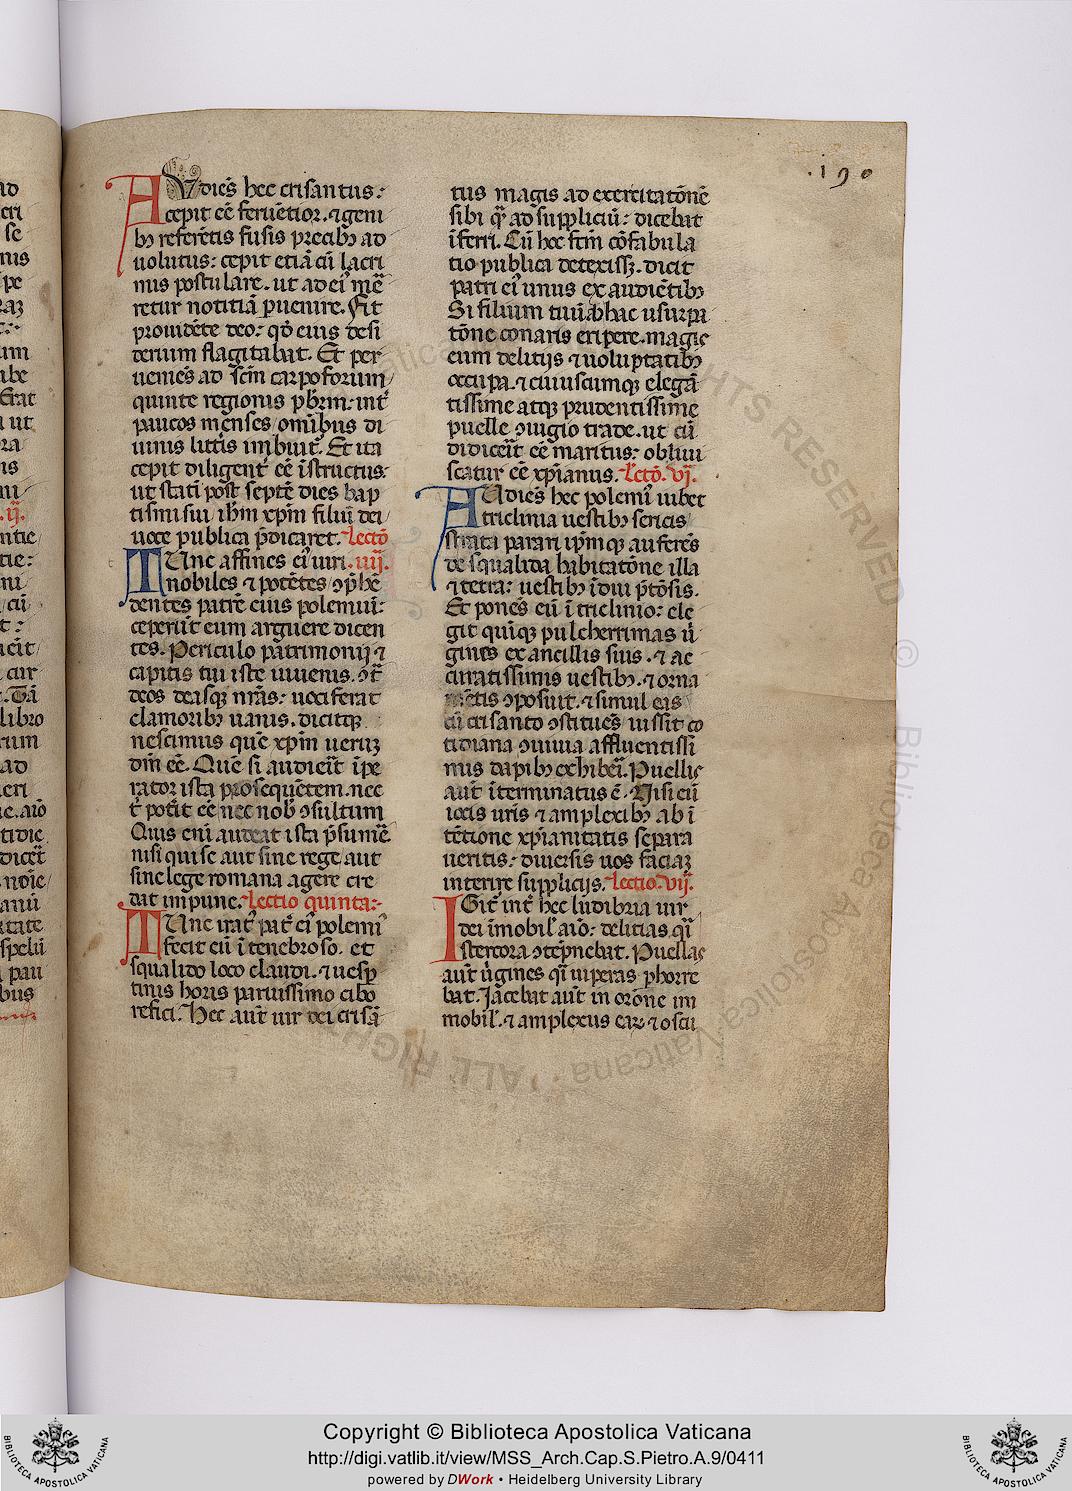 .190
Audiēs hec crisantus:
cepit eē feruētior. ⁊ geni
bꝫ referētis fusis precibꝫ ad
uolutus: cepit etiā cū lacri
mis postulare. ut ad ei' mē
retur notitiā puenire. Fit
prouidēte deo: qd̄ eius desi
derium flagitabat. Et per
ueniēs ad scm̄ carpoforum
quinte regionis pbr̄m: int'
paucos menses omībus di
uinis litt'is imbuit'. Et ita
cepit diligent' eē īstructus:
ut statī post septē dies bap
tismi sui ihm̄ xpm̄ filiū dei
uoce publica p̄dicaret. Lectō
Tūnc affines ei' uiri .iiij.
nobiles ⁊ potētes ↄp̄hē
dentes patrē eius polemiū:
ceperūt eum arguere dicen
tes. Periculo patrimonij ⁊
capitis tui iste iuuenis. ↄt̄
deos deasqꝫ nr̄as: uociferat'
clamoribꝫ uanis. dicitqꝫ
nescimus quē xpm̄ ueruꝫ
dm̄ eē. Quē si audieīt īpe
rator ista prosequētem. nec
t' pot'it eē nec nob' ↄsultum
Quis enī audeat ista p̄sumē
nisi qui se aut sine rege aut
sine lege romana agere cre
dat impune. Lectio quinta:
Tūnc irat' pat' ei' polemi'
fecit eū ī tenebroso. et
squalido loco claudi. ⁊ uesp̄
tinis horis paruissimo cibo
refici. Hec aut̄ uir dei crisā
tus magis ad exercitatōnē
sibi qƺ ad suppliciū: dicebat
īferri. Cū hec ftīn cōfabula
tio publica detexissꝫ. dicit
patri ei' unus ex audiētibꝫ
Si filium tuū ab hac usurpa
tōne conaris eripere. magis
eum delitijs ⁊ uoluptatibꝫ
occupa. ⁊ cuiuscumqꝫ elegā
tissime atqꝫ prudentissime
puelle ↄiugio trade. ut cū
didiceīt eē maritus: obliui
scatur eē xp̄ianus. Lectō. vj.
Audiēs hec polemi' iubet
triclinia uestibꝫ sericis
strata parari ip̄mqꝫ auferēs
de squalida habitatōne illa
⁊ tetra: uestibꝫ īdui p̄tōsis.
Et ponēs eū ī triclinio: ele
git quinqꝫ pulcherrimas ū
gines ex ancillis suis. ⁊ ac
curatissimis uestibꝫ. ⁊ orna
mētis ↄposuit. ⁊ simul eas
cū crisanto ↄstituēs iussit co
tidiana ↄuiuia affluentissi
mis dapibꝫ exhiberi. Puellis
aut̄ īterminatus ē. Nisi eū
iocis uris ⁊ amplexibꝫ ab ī
tētione xp̄ianitatis separa
ueritis: diuersis uos faciaꝫ
interire supplicijs. Lectio. vij.
Igit' int' hec ludibria uir
dei īmobil' aīo: delitias qƺ
stercora ↄtēpnebat. Puellas
aut̄ ūgines qƺ uiperas p̄horre
bat. Iacebat aut̄ in orōne im
mobil'. ⁊ amplexus eaꝝ ⁊ oscu
Copyright © Biblioteca Apostolica Vaticana
http://digi.vatlib.it/view/MSS_Arch.Cap.S.Pietro.A.9/0411
powered by DWork • Heidelberg University Library